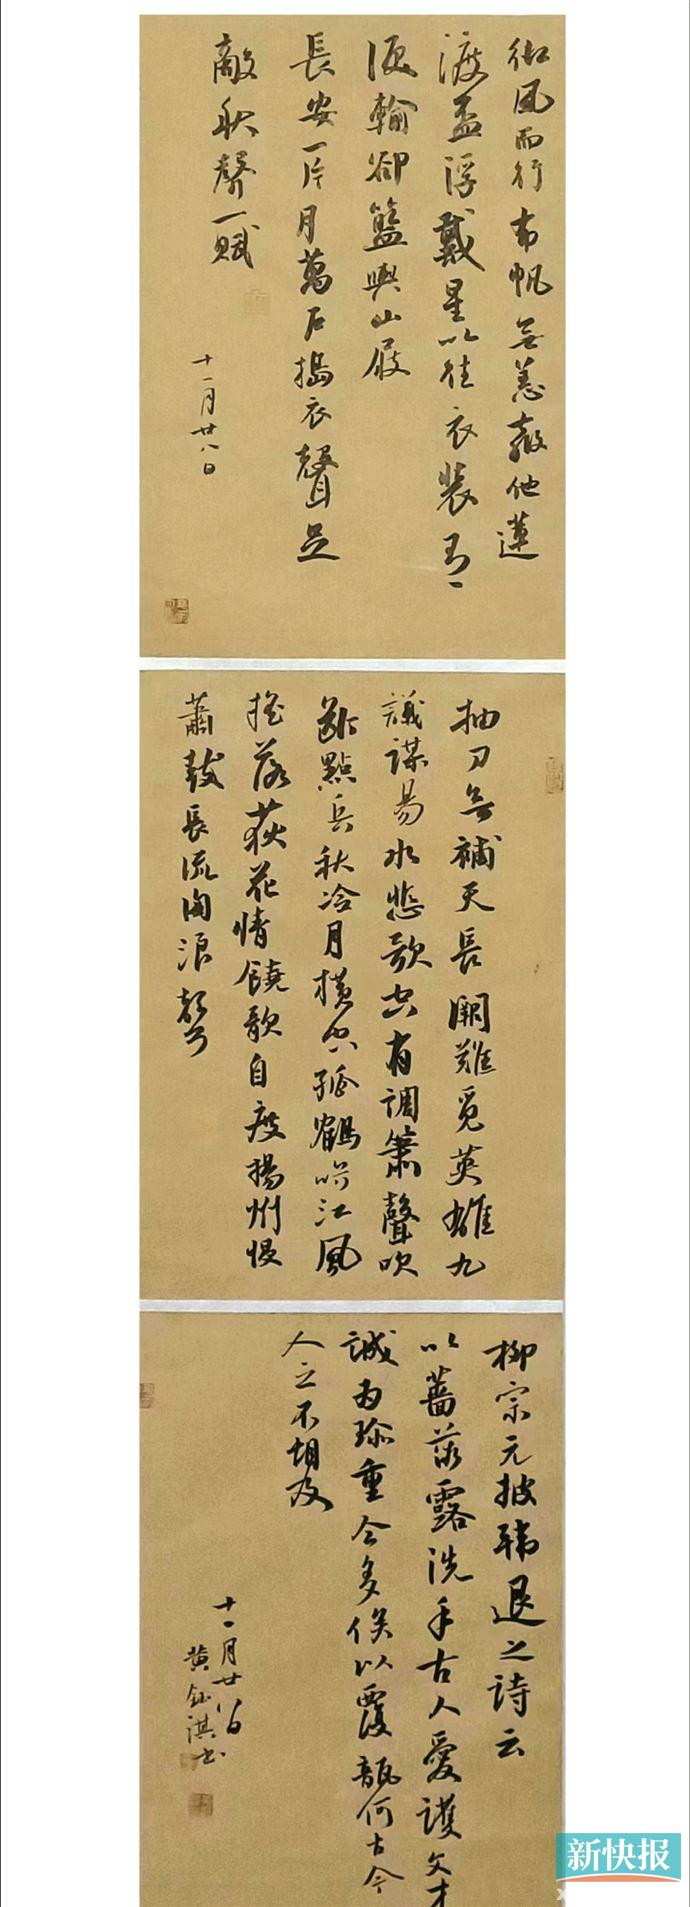 御風而行布帆無恙敵他蓮
渡盃浮戴星以往衣裝有
返輪卻籃輿山屐
長安一片月萬石搗衣聲足
敵秋聲一賦
十一月廿八日
抽刀無補天長闕難覓英雄九
議謀易水悲歌空有調簫聲吹
斷點兵秋冷月橫空孤鶴唳江風
搖落荻花情饒歌自度揚州慢
蕭鼓長流向浪聲
柳宗元披韓退之詩云
以薔薇露洗手古人愛護文才
誠為珍重今多俟以覆瓿何古今
人之不相及
十一月廿八日
黃鈺淇書
新快报